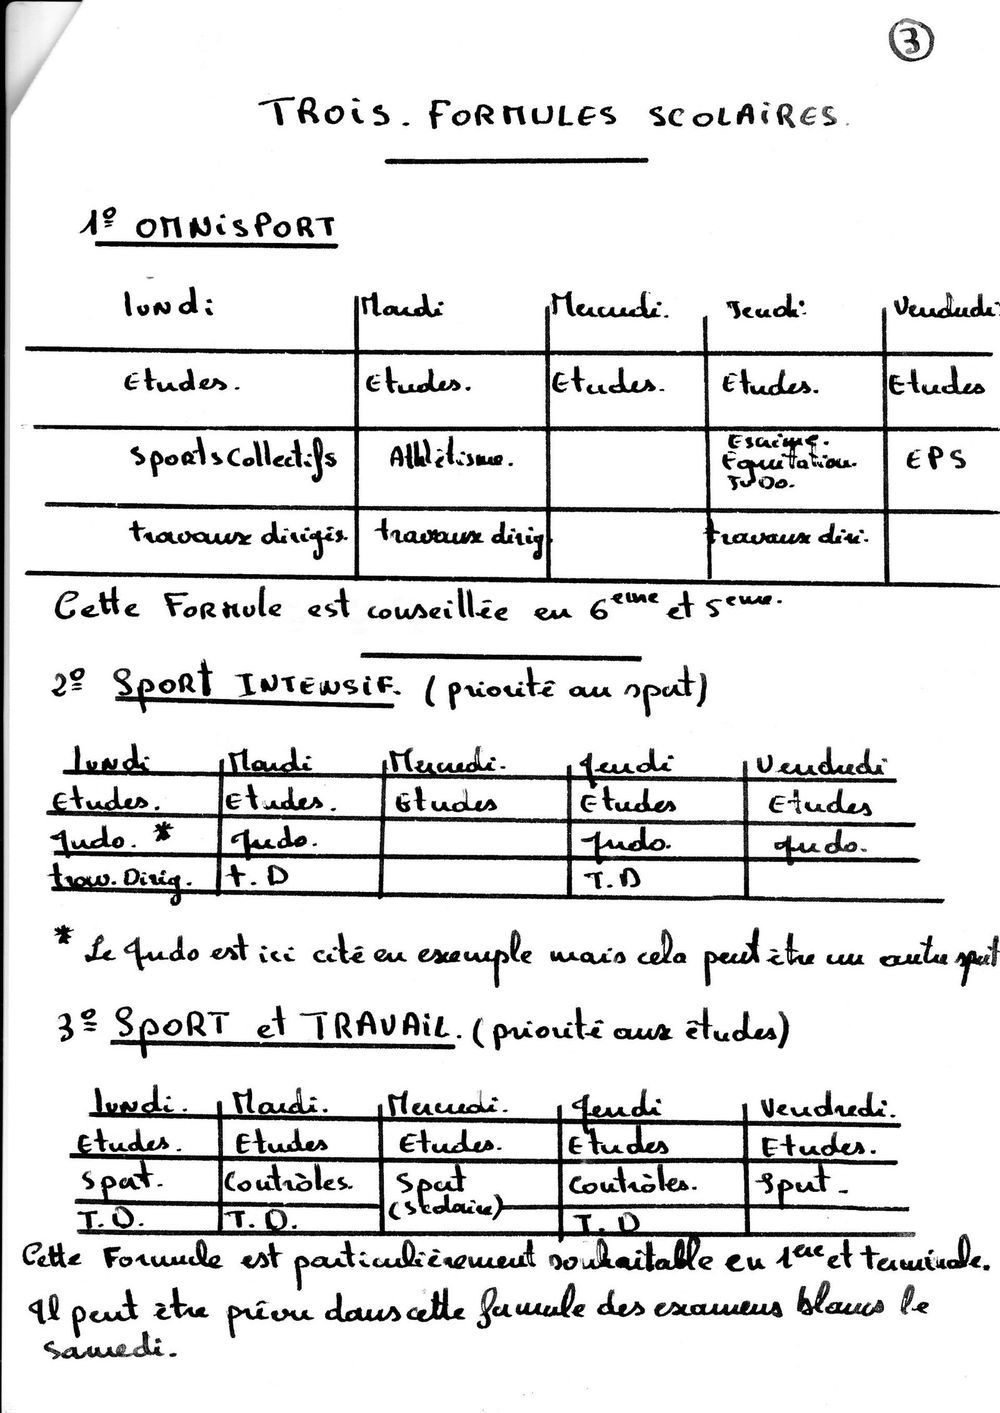 3
TROIS. FORMULES SCOLAIRES.
1º OMNISPORT
lundi Mardi Mercredi. Jeudi Vendredi
Etudes. Etudes. Etudes. Etudes. Etudes
Sports Collectifs Athlétisme. Escrime. Équitation. Judo. EPS
travaux dirigés. travaux dirig travaux diri.
Cette Formule est conseillée en 6eme et 5eme.
2º Sport INTENSIF. (priorité au sport)
lundi Mardi Mercredi. Jeudi Vendredi
Etudes. Etudes. Etudes Etudes Etudes
Judo. * Judo. Judo. Judo.
trav. Dirig. T.D T.D
* Le Judo est ici cité en exemple mais cela peut être un autre sport
3º SPORT et TRAVAIL. (priorité aux études)
lundi. Mardi. Mercredi. Jeudi Vendredi.
Etudes. Etudes Etudes. Etudes Etudes.
Sport. Contrôles. Sport (Scolaire) Contrôles. Sport.
T.D. T.D. T.D
Cette Formule est particulièrement souhaitable en 1ere et terminale.
Il peut être prévu dans cette formule des examens blancs le
samedi.